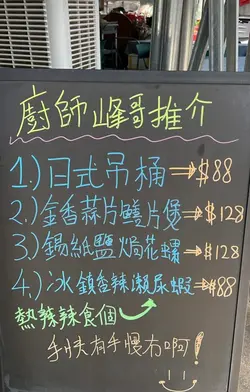 廚師峰哥推介
1.)日式吊桶⇒$88
2.)金香蒜片鱔片煲⇒$128
3.)錫紙鹽焗花螺⇒$128
4.)冰鎮香辣瀨尿蝦⇒$88
熱辣辣食個
手快有手慢冇啊!